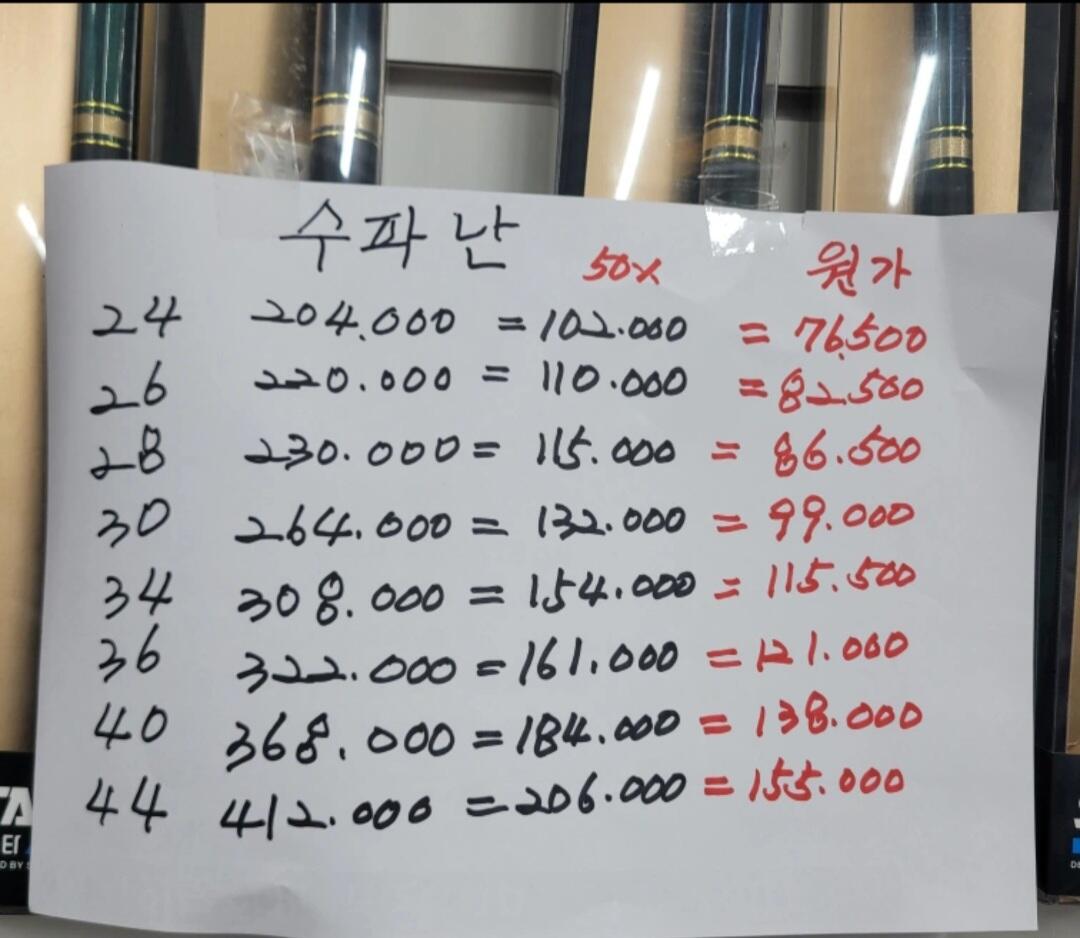 수파난 50% 원가
24 204.000 = 102.000 = 76.500
26 220.000 = 110.000 = 82.500
28 230.000 = 115.000 = 86.500
30 264.000 = 132.000 = 99.000
34 308.000 = 154.000 = 115.500
36 322.000 = 161.000 = 121.000
40 368.000 = 184.000 = 138.000
44 412.000 = 206.000 = 155.000